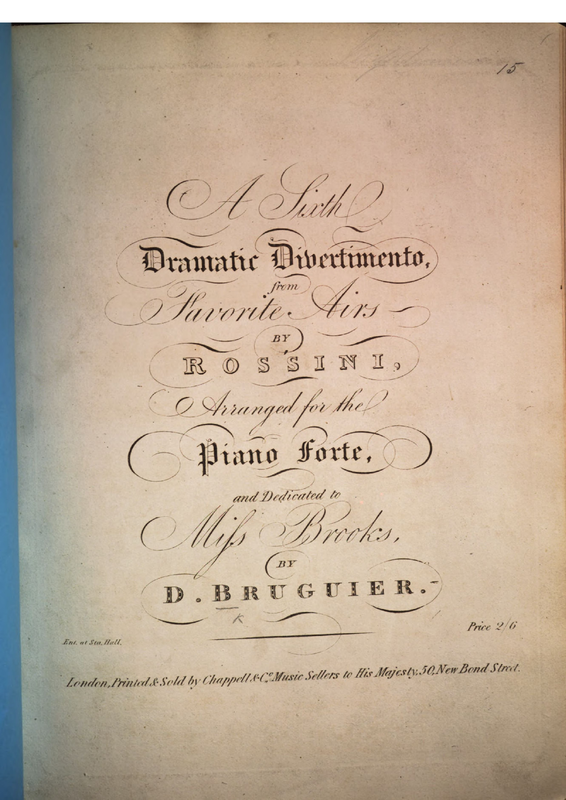 15
A Sixth
Dramatic Divertimento,
from
Favorite Airs
BY
ROSSINI,
Arranged for the
Piano Forte,
and Dedicated to
Miſs Brooks,
BY
D. BRUGUIER.
Price 2/6
Ent. at Sta. Hall.
London, Printed & Sold by Chappell & Co. Music Sellers to His Majesty, 50, New Bond Street.